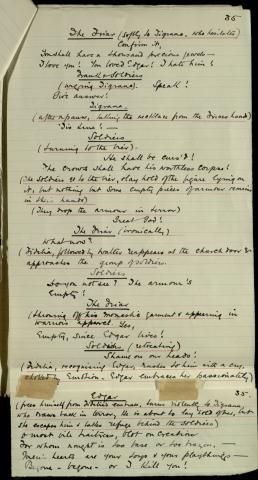 35
The Friar (softly to Tigrana, who hesitates)
Confirm it,
Thou shalt have a thousand precious jewels —
I love you! You loved Edgar! I hate him!
Frank & Soldiers
(urging Tigrana). Speak!
Give answer!
Tigrana
(after a pause, taking the necklace from the Friar's hand)
'Tis true! —
Soldiers
(turning to the bier).
He shall be curs'd!
The crows shall have his worthless corpse!
(The soldiers go to the bier, lay hold of the figure lying on
it, but nothing but some empty pieces of armour remain
in their hands)
(They drop the armour in terror)
Great God!
The Friar (ironically)
What now?
(Fidelia, followed by Walter, appears at the church door &
approaches the group of soldiers.
Soldiers
Do you not see? The armour's
Empty!
The Friar
(throwing off his monastic garment & appearing in
warrior's apparel. Yes,
Empty, since Edgar lives!
Soldiers (retreating)
Shame on our heads!
(Fidelia, recognizing Edgar, rushes to him with a cry,
choked by emotion. Edgar embraces her passionately)
Edgar
35.
(frees himself from Fidelia's embrace, turns violently to Tigrana
who draws back in terror, He is about to lay hold of her, but
she escapes him & takes refuge behind the soldiers)
O most vile traitress, blot on Creation
For whom nought is too base or too
Men's hearts are your toys & your playthings —
Begone — begone — or I kill you!